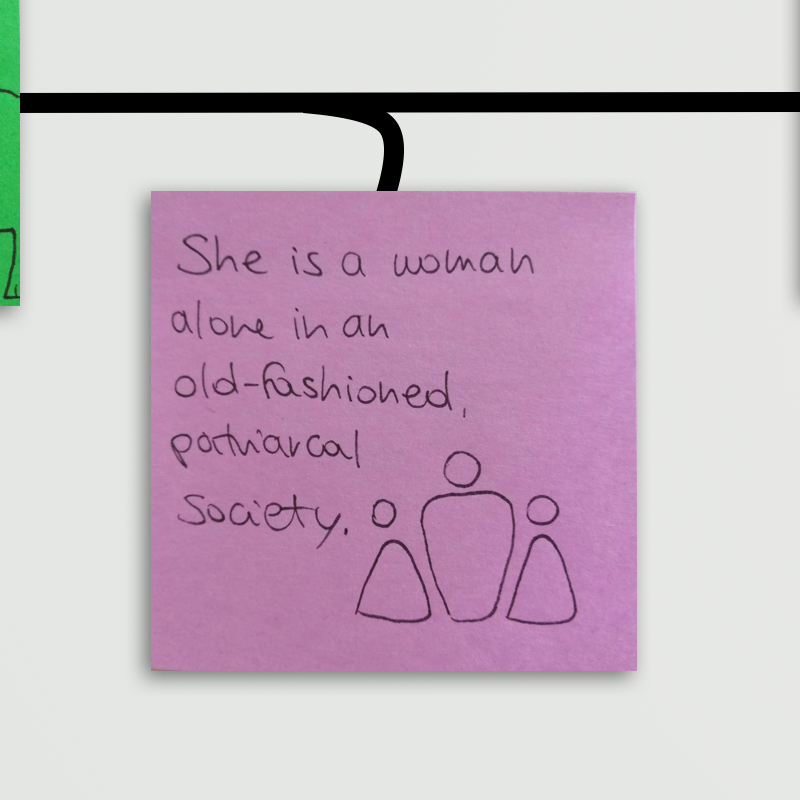 She is a woman
alone in an
old-fashioned,
patriarcal
society.